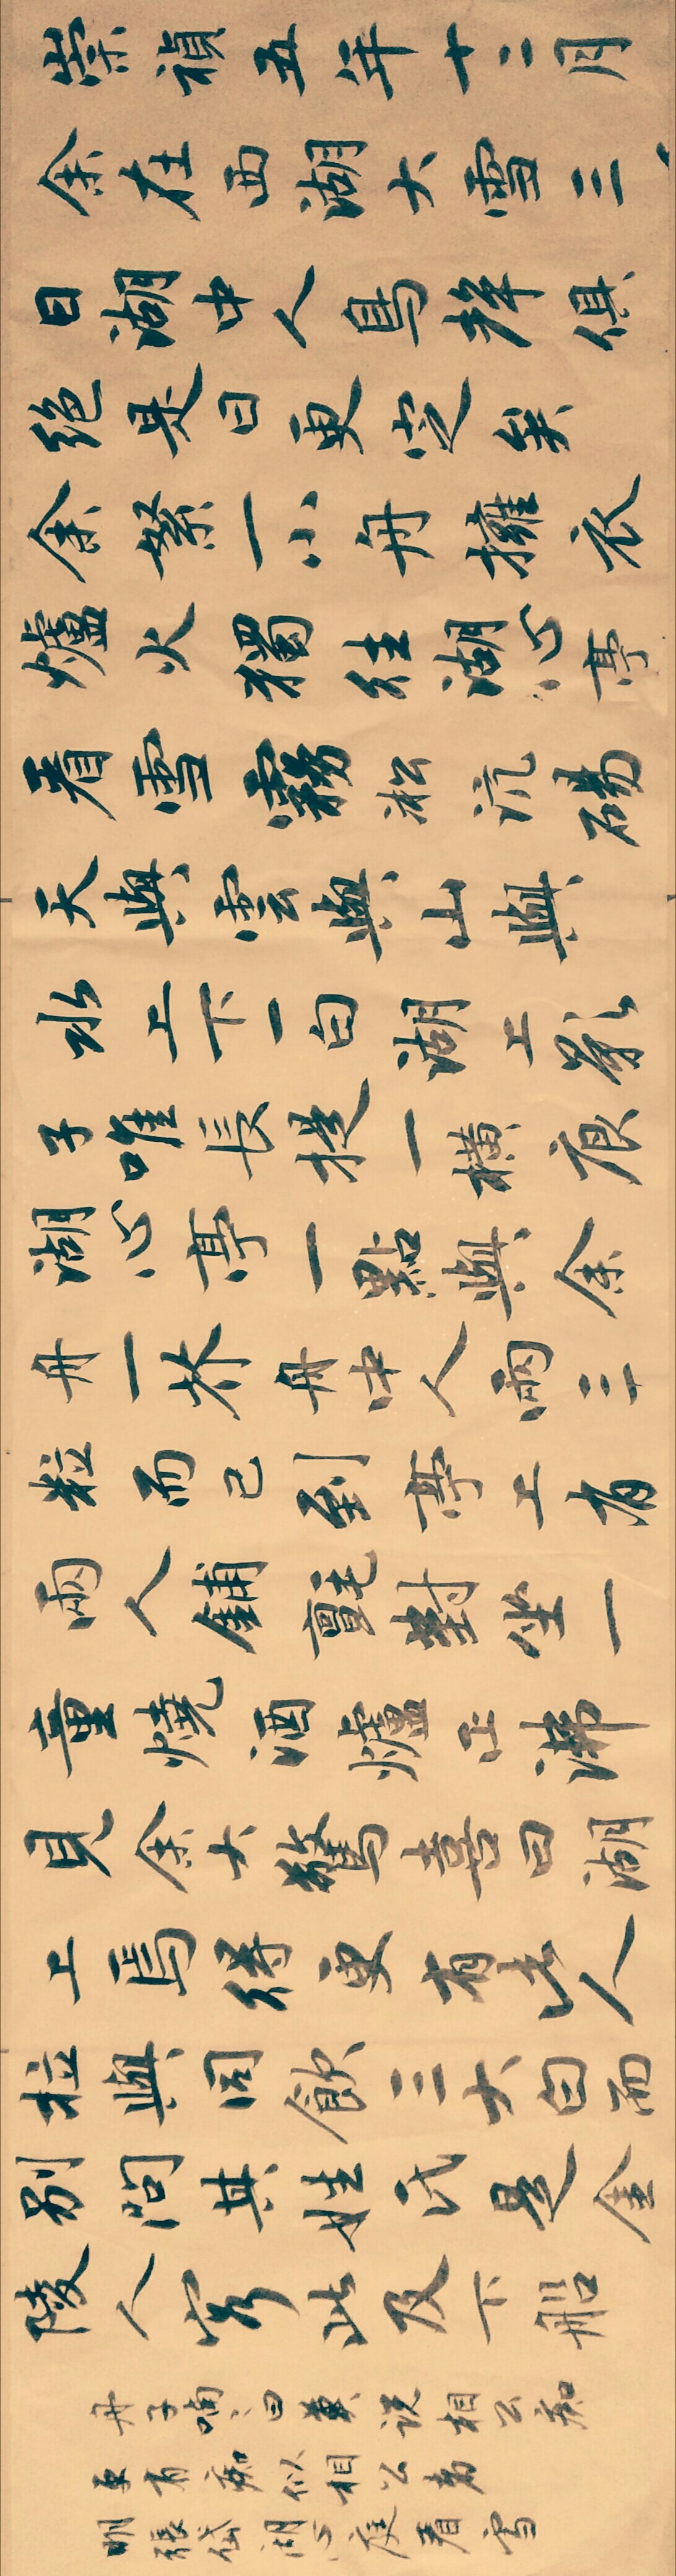 崇禎五年十二月
余在西湖大雪三
日湖中人鳥聲俱
絕是日更定矣
余拏一小舟擁衣
爐火獨往湖心亭
看雪霧凇沆碭
天與雲與山與
水上下一白湖上影
子唯長堤一橫痕
湖心亭一點與余
舟一芥舟中人兩三
粒而已到亭上有
兩人鋪氈對坐一
童燒酒爐正沸
見余大驚喜曰湖
上焉得更有此人
拉與同飲三大白而
別問其姓氏是金
陵人客此及下船
舟子喃〻曰莫說相公痴
更有痴似相公者
明張岱湖心庭看雪